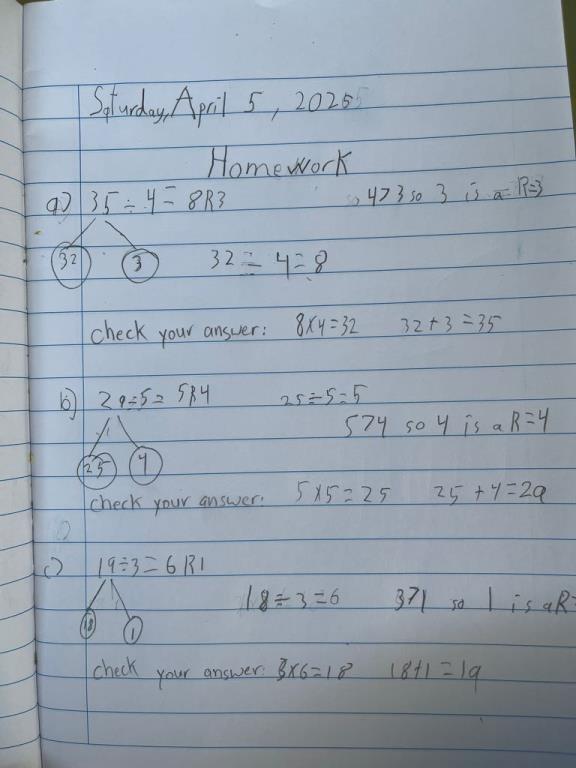 Saturday, April 5, 2025
Homework
a) 35 ÷ 4 = 8R3 4>3 so 3 is a R=3
32 3 32 ÷ 4 = 8
check your answer: 8x4=32 32+3=35
b) 29÷5= 5R4 25÷5=5
5>4 so 4 is a R=4
25 4
check your answer: 5x5=25 25+4=29
c) 19÷3=6R1
18÷3=6 3>1 so 1 is a R=
18 1
check your answer: 3x6=18 18+1=19